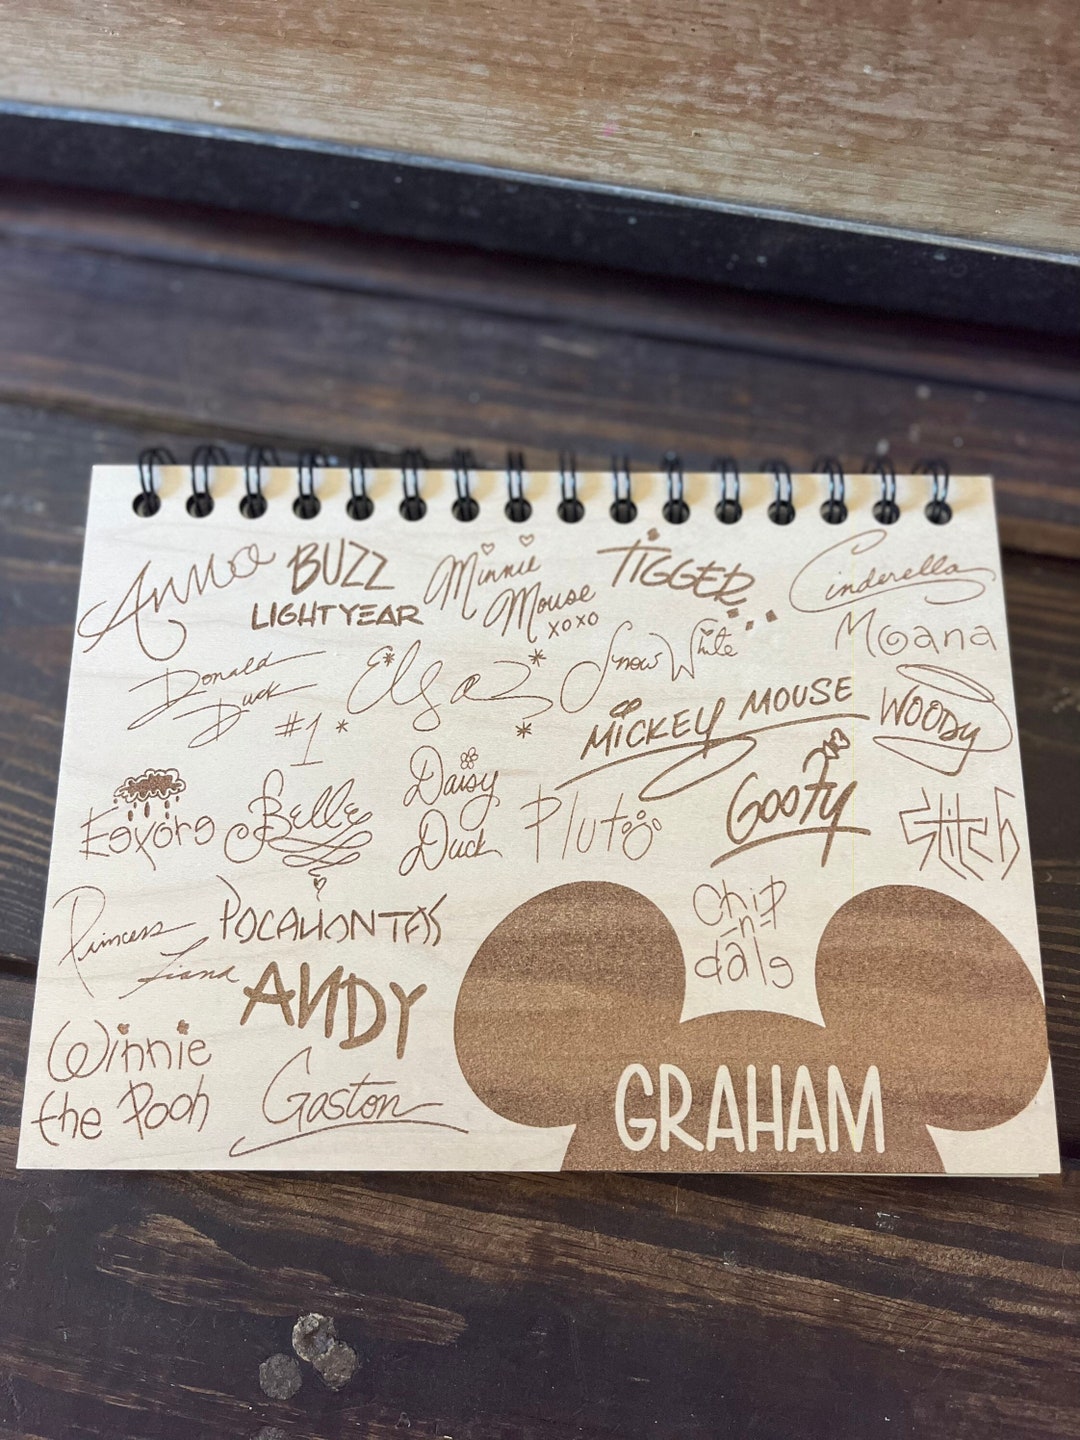 Anna
BUZZ
LIGHTYEAR
Minnie
Mouse
xoxo
TIGGER
Cinderella
Moana
Donald
Duck
#1
Elsa
Snow White
MICKEY MOUSE
WOODY
Eeyore
Belle
Daisy
Duck
Pluto
GOOFY
Stitch
Princess
Tiana
POCAHONTAS
Chip
-n-
dale
ANDY
Winnie
the Pooh
Gaston
GRAHAM